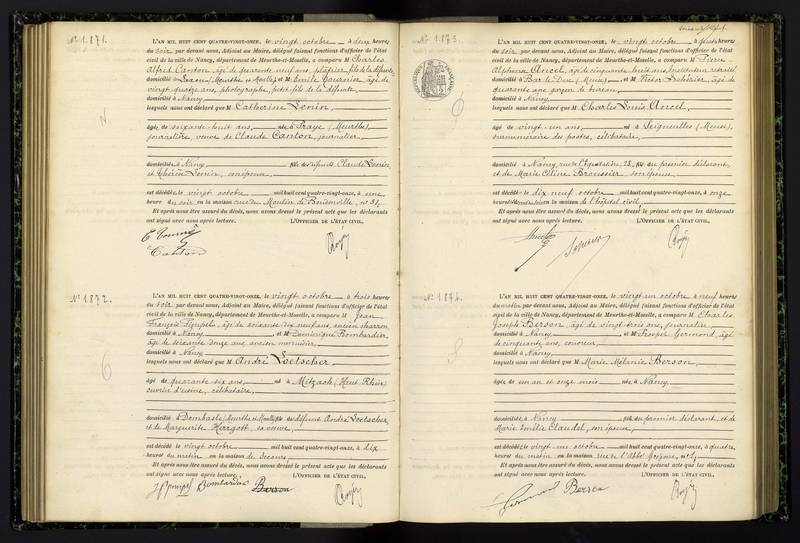 N° 1.871.
L'AN MIL HUIT CENT QUATRE-VINGT-ONZE, le vingt octobre à deux heures
du soir par devant nous, Adjoint au Maire, délégué faisant fonctions d'officier de l'état
civil de la ville de Nancy, département de Meurthe-et-Moselle, a comparu M Charles
Alfred Canton, âgé de quarante neuf ans, plâtrier, fils de la défunte,
domicilié à (Meurthe et Moselle) et M Emile Tournier, âgé de
vingt quatre ans, photographe, petit-fils de la défunte,
domicilié à Nancy
lesquels nous ont déclaré que M Catherine Lenin,
âgée de soixante-huit ans, née à Praye (Meurthe),
journalière, veuve de Claude Canton, journalier,
domiciliée à Nancy, fille des défunts Claude Lenin
et Thérèse Lenin, son épouse,
est décédée le vingt octobre mil huit cent quatre-vingt-onze, à une
heure du soir en la maison rue du Moulin de Boudonville, n° 31,
Et après nous être assuré du décès, nous avons dressé le présent acte que les déclarants
ont signé avec nous après lecture. L'OFFICIER DE L'ÉTAT CIVIL,
Canton
N° 1.872.
L'AN MIL HUIT CENT QUATRE-VINGT-ONZE, le vingt octobre à trois heures
du soir par devant nous, Adjoint au Maire, délégué faisant fonctions d'officier de l'état
civil de la ville de Nancy, département de Meurthe-et-Moselle, a comparu M Jean
François Pompel, âgé de soixante dix neuf ans, ancien charron
domicilié à Nancy et M Dominique Bombardier
âgé de soixante douze ans, ancien menuisier
domicilié à Nancy
lesquels nous ont déclaré que M André Loetscher
âgé de quarante six ans, né à Mitzach (Haut-Rhin)
ouvrier d'usine, célibataire,
domicilié à Dombasle (Meurthe et Moselle) fils de défunt André Loetscher,
et de Marguerite Herrgott sa veuve
est décédé le vingt octobre mil huit cent quatre-vingt-onze, à dix
heures du matin en la maison de secours,
Et après nous être assuré du décès, nous avons dressé le présent acte que les déclarants
ont signé avec nous après lecture. L'OFFICIER DE L'ÉTAT CIVIL,
Bombardier Berson
N° 1.873.
L'AN MIL HUIT CENT QUATRE-VINGT-ONZE, le vingt octobre à quatre heures
du soir par devant nous, Adjoint au Maire, délégué faisant fonctions d'officier de l'état
civil de la ville de Nancy, département de Meurthe-et-Moselle, a comparu M Pierre
Alphonse Ancel, âgé de cinquante huit ans, instituteur retraité,
domicilié à Bar le Duc (Meuse) et M Victor, âgé de
quarante ans garçon de bureau,
domicilié à Nancy
lesquels nous ont déclaré que M Charles Louis Ancel,
âgé de vingt-un ans, né à Seigneulles (Meuse),
surnuméraire des postes, célibataire,
domicilié à Nancy, rue de l'Equitation, 23, fils du premier déclarant,
et de Marie Céline Broussier son épouse,
est décédé le dix neuf octobre mil huit cent quatre-vingt-onze, à onze
heures en la maison de l'hôpital civil,
Et après nous être assuré du décès, nous avons dressé le présent acte que les déclarants
ont signé avec nous après lecture. L'OFFICIER DE L'ÉTAT CIVIL,
N° 1.874.
L'AN MIL HUIT CENT QUATRE-VINGT-ONZE, le vingt-un octobre à neuf heures
du matin par devant nous, Adjoint au Maire, délégué faisant fonctions d'officier de l'état
civil de la ville de Nancy, département de Meurthe-et-Moselle, a comparu M Charles
Joseph Berson, âgé de vingt-trois ans, journalier
domicilié à Nancy et M Prosper Germond, âgé
de cinquante ans, couvreur
domicilié à Nancy
lesquels nous ont déclaré que M Marie Mélanie Berson,
âgée de un an et onze mois née à Nancy,
domiciliée à Nancy fille du premier déclarant, et de
Marie Emilie Claudel, son épouse,
est décédée le vingt-un octobre mil huit cent quatre-vingt-onze, à quatre
heures du matin en la maison rue de l'Abbé Grégoire, n° 7,
Et après nous être assuré du décès, nous avons dressé le présent acte que les déclarants
ont signé avec nous après lecture. L'OFFICIER DE L'ÉTAT CIVIL,
Germond Berson